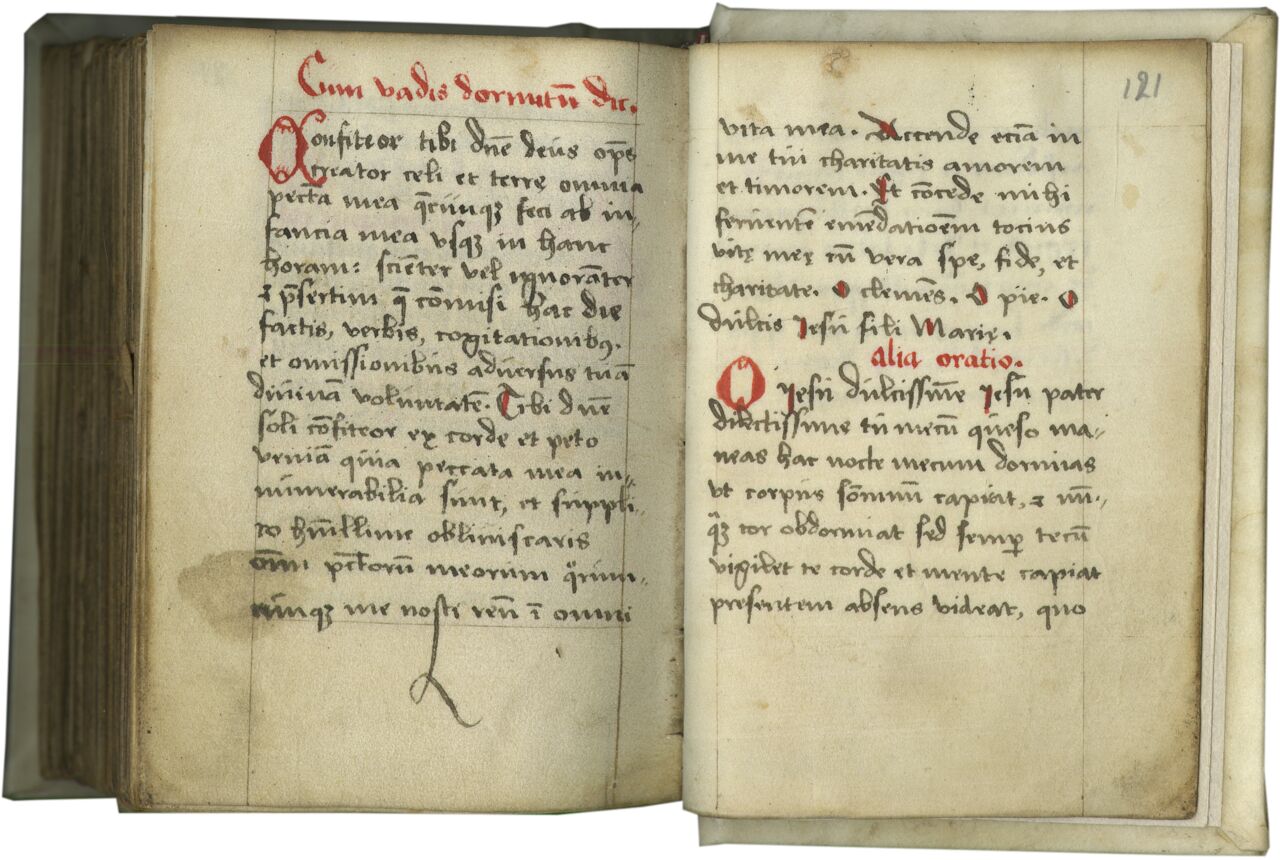 Cum vadis dormitū dic.
Confiteor tibi dn̄e deus op̄s
creator celi et terrę omnia
pecc̄ta mea q̄cunqꝫ feci ab in-
fancia mea vsqꝫ in hanc
horam: scienter vel ignorāter
⁊ p̄sertim q̄ cōmisi hac die
factis, verbis, cogitationibꝰ.
et omissionibus aduersus tuā
diuinā voluntatē. Tibi dn̄e
soli cōfiteor ex corde et peto
veniā quia peccata mea in-
numerabilia sunt, et suppli-
co humillime obliuiscaris
om̄i pc̄torū meorum qͦrum-
cunqꝫ me nosti reū ī omni
121
vita mea. Accende eciā in
me tui charitatis amorem
et timorem. Et cōcede mihi
feruentē emēdatioēm tocius
vitę meę cū vera spe, fide, et
charitate. O clemēs. O pie. O
dulcis Iesu fili Marię.
alia oratio.
O Iesu dulcissime Iesu pater
dilectissime tu mecū queso ma-
neas hac nocte mecum dormias
vt corpus sōmnum capiat, ⁊ nū-
qͣꝫ cor obdormiat sed semꝑ tecū
vigilet te corde et mente capiat
presentem absens videat, quo